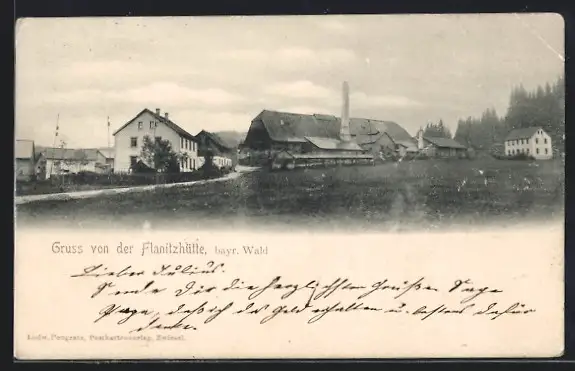 Gruss von der Flanitzhütte, bayr. Wald
Lieber Julius.
Sende Dir die herzlichsten Grüße. Sage
Papa, daß ich das Geld erhalten u. bestens dafür
danke.
Ludw. Pongratz, Postkartenverlag, Zwiesel.